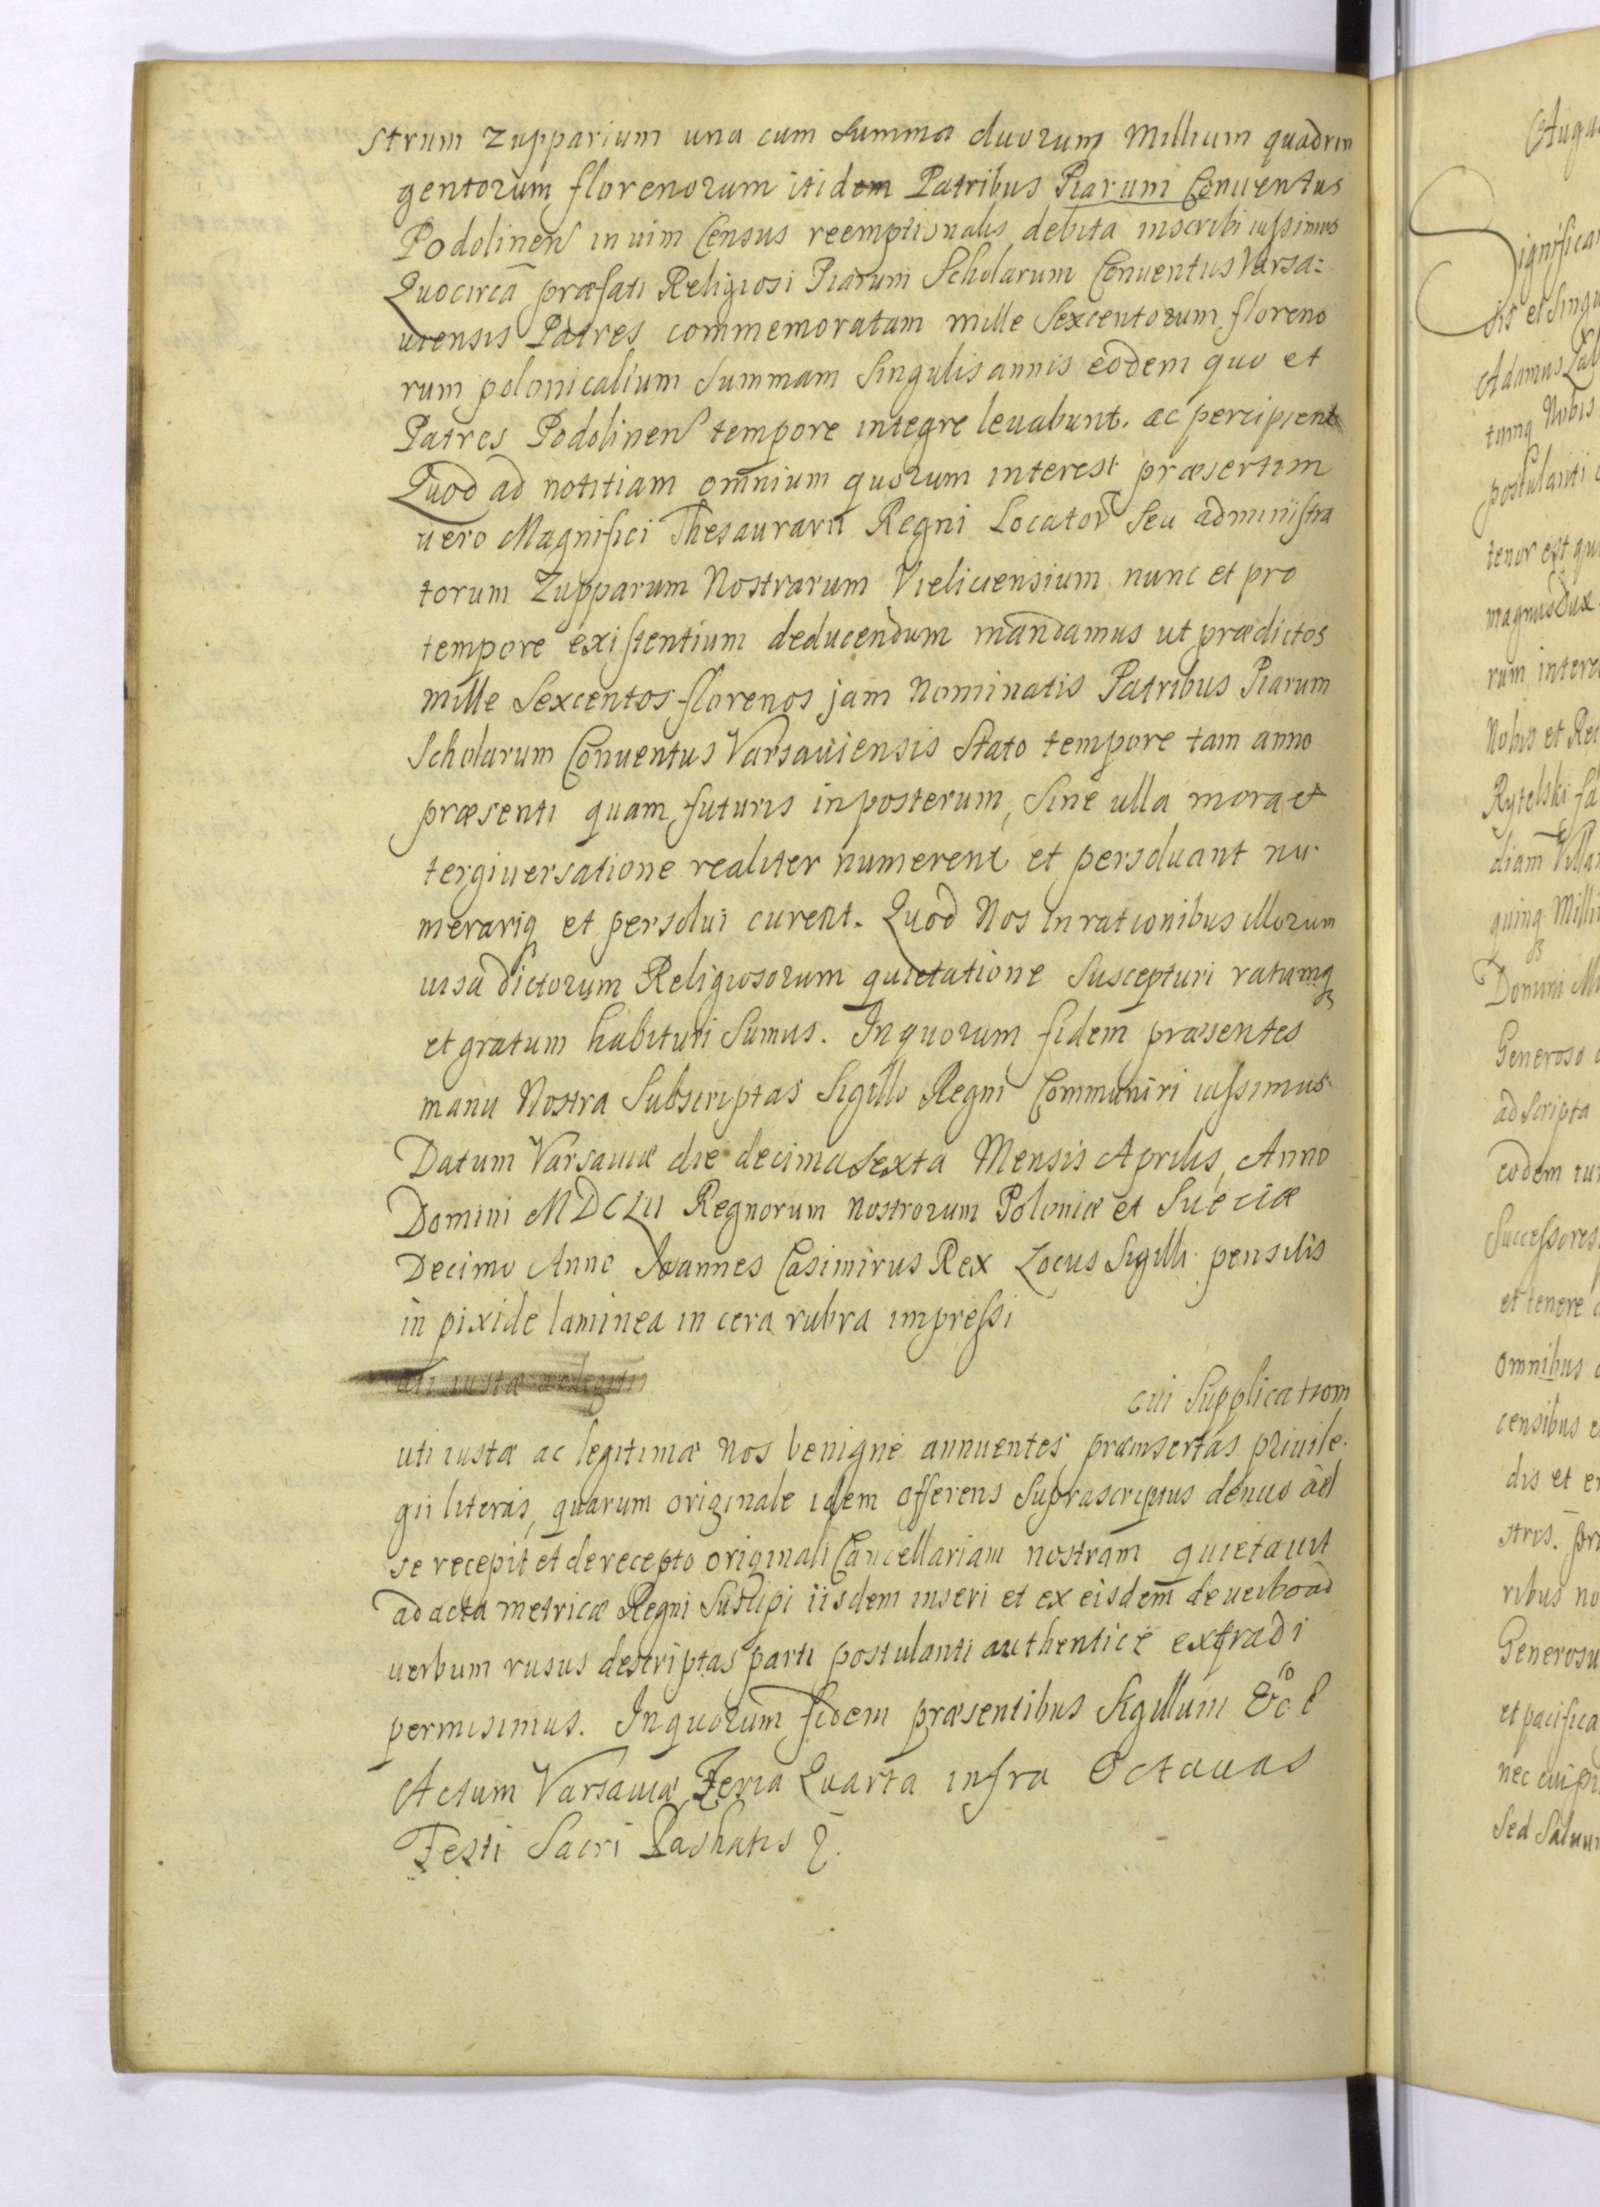 strum Zupparium una cum Summa duorum Millium quadrin
gentorum florenorum itidem Patribus Piarum Conuentus
Podolinen in uim Census reemptionalis debita inscribi iussimus
Quocirca præfati Religiosi Piarum Scholarum Conuentus Varsa:
uiensis Patres commemoratam mille Sexcentorum floreno
rum polonicalium Summam Singulis annis eodem quo et
Patres Podolinen tempore integre leuabunt. ac percipient
Quod ad notitiam omnium quorum interest præsertim
uero Magnifici Thesaurarii Regni Locator Seu administra
torum Zupparum Nostrarum Vieliciensium nunc et pro
tempore existentium deducendum mandamus ut prædictos
mille Sexcentos florenos jam Nominatis Patribus Piarum
Scholarum Conuentus Varsauiensis Stato tempore tam anno
præsenti quam futuris inposterum, Sine ulla mora et
tergiuersatione realiter numerent et persoluant nu
merariq et persolui curent. Quod Nos in rationibus illorum
uisa dictorum Religiosorum quietatione Suscepturi ratumq
et gratum habituri Sumus. In quorum fidem præsentes
manu Nostra Subscriptas Sigillo Regni Communiri iussimus
Datum Varsauiæ die decima Sexta Mensis Aprilis, Anno
Domini MDCLII Regnorum Nostrorum Poloniæ et Sueciæ
Decimo Anno Joannes Casimirus Rex Locus Sigilli pensilis
in pixide laminea in cera rubra impressi
uti iustæ ac legitimæ
cui Supplicationi
uti iustæ ac legitimæ Nos benigne annuentes, præinsertas priuile
gii literas, quarum originale idem offerens Suprascriptus denuo ad
se recepit et de recepto originali Cancellariam nostram quietauit
ad acta metricæ Regni Suscipi iisdem inseri et ex eisdem de uerbo ad
uerbum rusus descriptas parti postulanti authentice extradi
permisimus. In quorum fidem præsentibus Sigillum
Actum Varsauiæ Feria Quarta infra Octauas
Festi Sacri Pashatis
Signifi
et Singu
Adamus
Nobis
postulanti
tenor est
magnus Dux
rum intere
Nobis et Re
Rytelski
diam
quinq Milli
Domini
Generoso
ad Scripta
eodem
Successores
et tenere
omnibus
censibus
dis et
stris.
ribus no
Generosu
et pacifica
nec
Sed Saluu